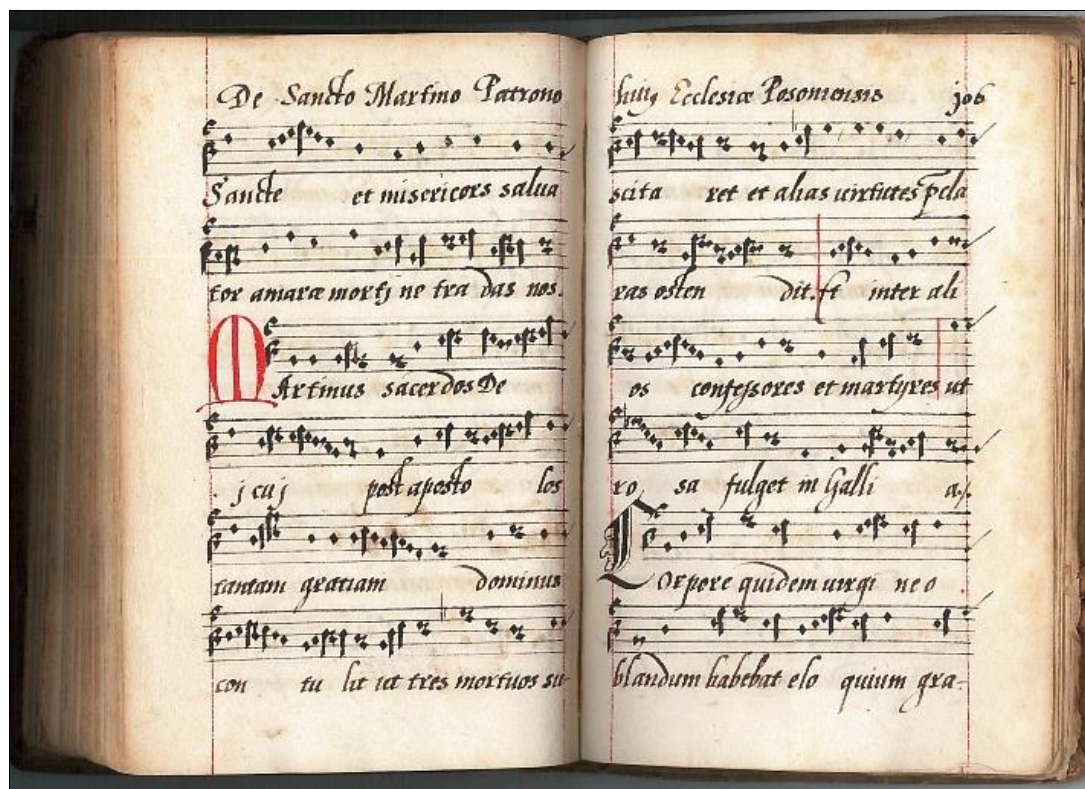 De Sancto Martino Patrono
Sancte et misericors salua
tor amaræ mortj ne tra das nos.
MArtinus sacerdos De
j cuj post aposto los
tantam gratiam dominus
con tu lit ut tres mortuos su-
huiꝰ Ecclesiæ Posoniensis 106
scita ret et alias uirtutes p̃cla
ras osten dit. Et inter ali
os confessores et martyres ut
ro sa fulget in Galli a.
COrpore quidem uirgi ne o
blandum habebat elo quium gra-